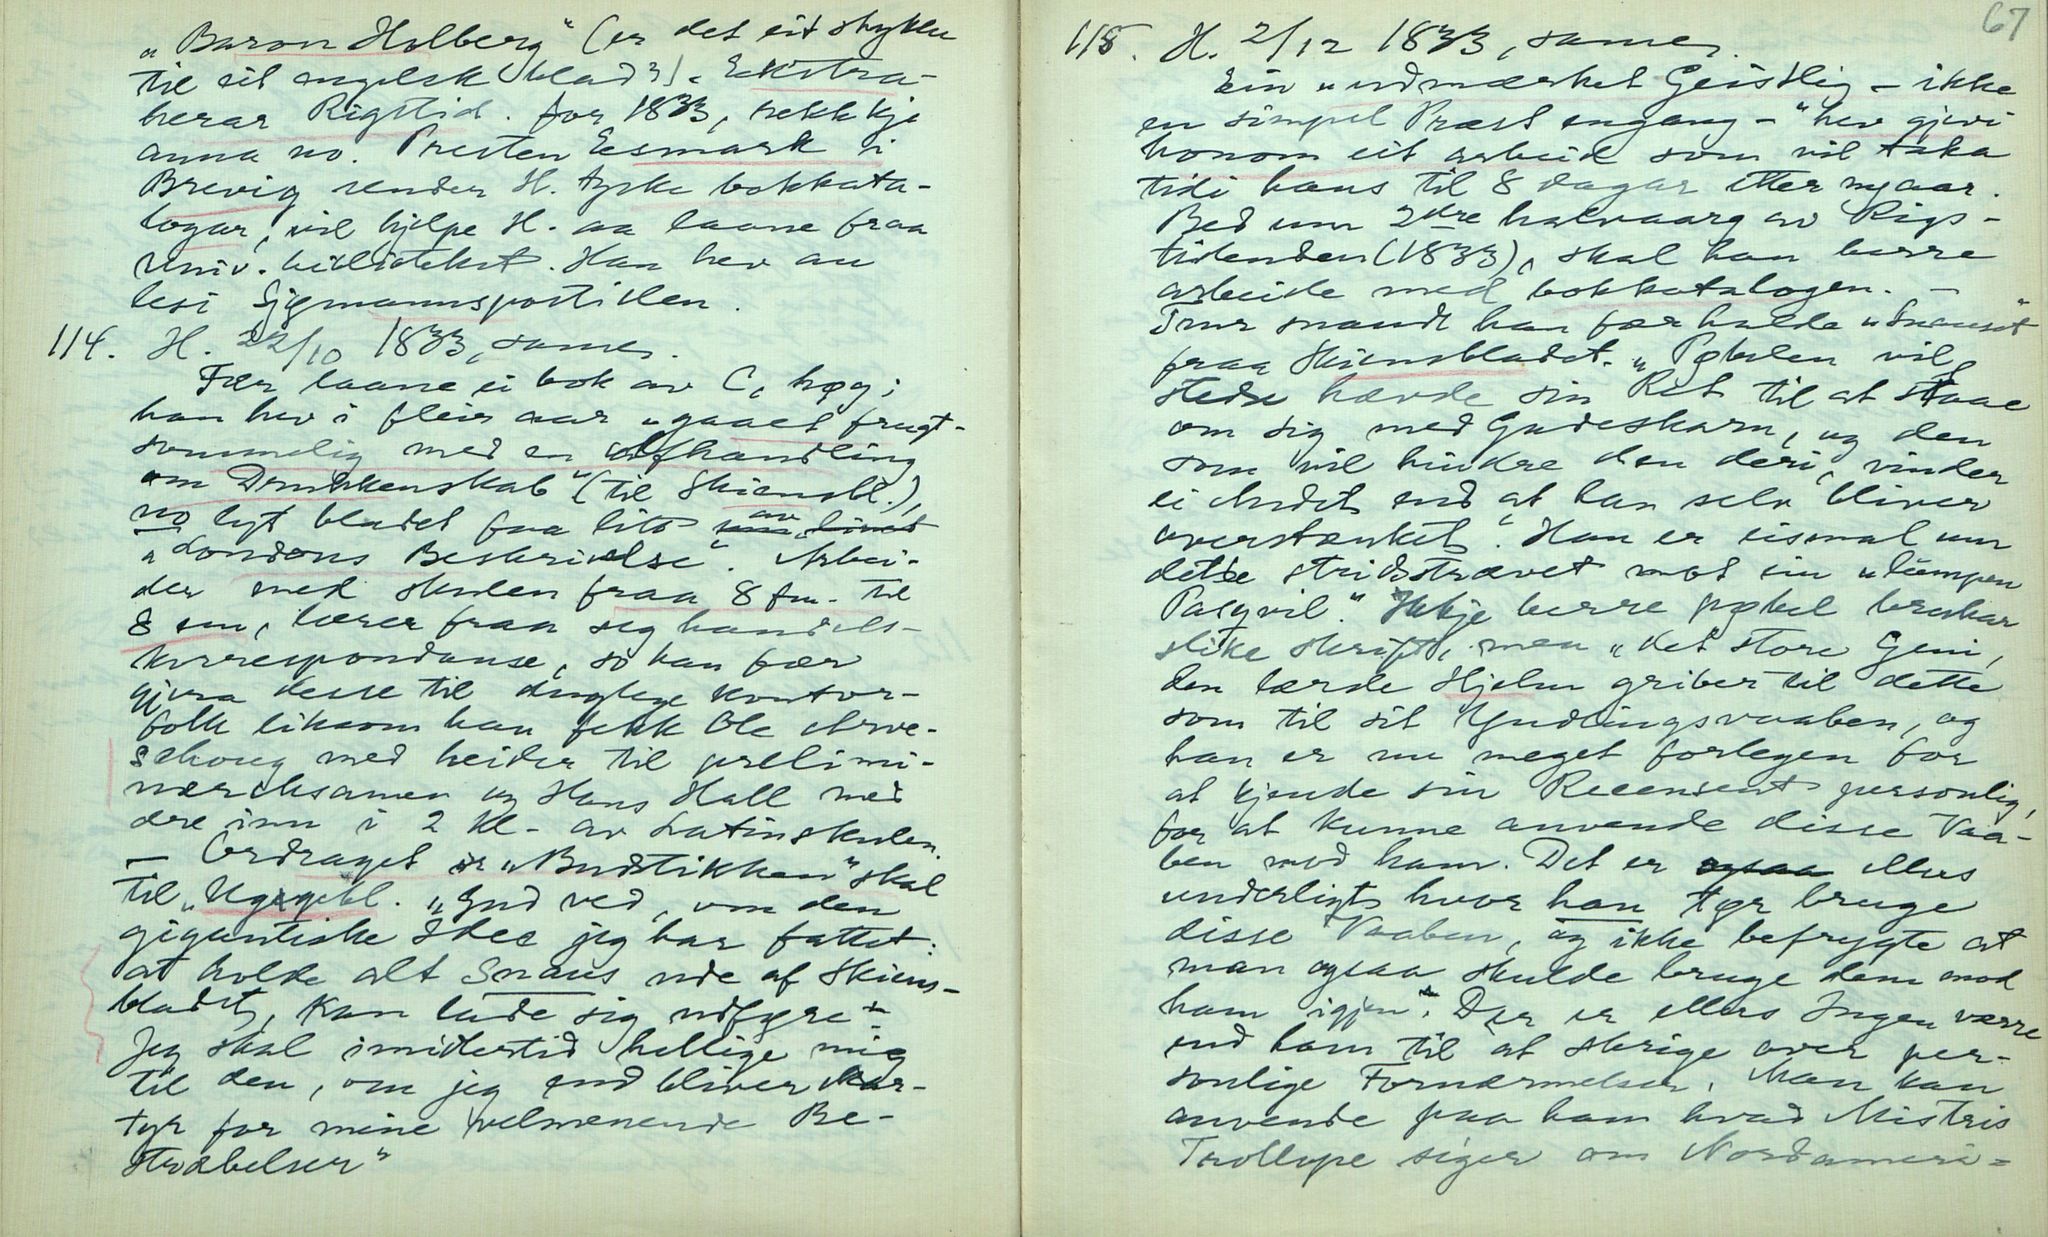 „Baron Holberg“ (er det eit stykke
til eit engelsk blad?). Ekstra-
herar Rigstid. for 1833, rekk kje
anna no. Presten Esmark i
Brevig sender H. tyske bokkata-
logar, vil hjelpe H. aa laane fraa
Univ. biblioteket. Han hev au
lesi Sjømannspostillen.
114. H. 22/10 1833, sames.
Fær laane ei bok av C, høg;
han hev i fleir aar „gaaet frugt-
sommelig med en Afhandling
om Drukkenskab“ (til Skiensbl.),
no lyt bladet faa litt av
„Londons Beskrivelse“. Arbei-
der med skulen fraa 8 fm. til
8 em, lærer fraa seg handels-
korrespondanse, so han fær
gjera desse til duglege kontor-
folk liksom han fekk Ole Arve-
schoug med heider til prelimi-
næreksamen og Hans Hall med
dre inn i 2 kl. av Latinskulen.
— Ordraget i „Budstikken“ skal
til „Ugegebl. „Gud ved, om den
gigantiske Idee jeg har fattet:
at holde alt Snaus ude af Skiens-
bladet, kan lade sig udføre —
Jeg skal imidlertid hellige mig
til den, om jeg end bliver Mar-
tyr for mine velmenende Be-
stræbelser“
67
115. H. 2/12 1833, sames.
Ein „udmærket Geistlig — ikke
en simpel Præst engang —“ hev gjevi
honom eit arbeid som vil taka
tidi hans til 8 dagar etter nyaar.
Bed um 2dre halvaarg av Rigs-
tidenden (1833), skal han berre
arbeide med bokkatalogen. —
Trur snaudt han fær halde „Snauset“
fraa Skiensbladet. „Pøbelen vil
stedse hævde sin Ret til at staae
om sig med Gadeskarn, og den
som vil hindre den deri, vinder
ei Andet end at han selv bliver
overstænket“. Han er eismal um
dette stridsskrevet mot ein „lumpen
Pasqvil.“ Ikkje berre pøbel brukar
slike skrift, men „det store Geni,
den lærde Hjelm griber til dette
som til sit Yndlingsvaaben, og
han er nu meget forlegen for
at kjende sin Recensent personlig,
for at kunne anvende disse Vaa-
ben mod ham. Det er ogsaa ellers
underligt hvor han tør bruge
disse Vaaben, og ikke befrygte at
man ogsaa skulde bruge dem mod
ham igjen“. Der er ellers Ingen værre
end ham til at skrige over per-
sonlige Fornærmelser. Man kan
anvende paa ham hvad Mistris
Trollope siger om Nordameri-